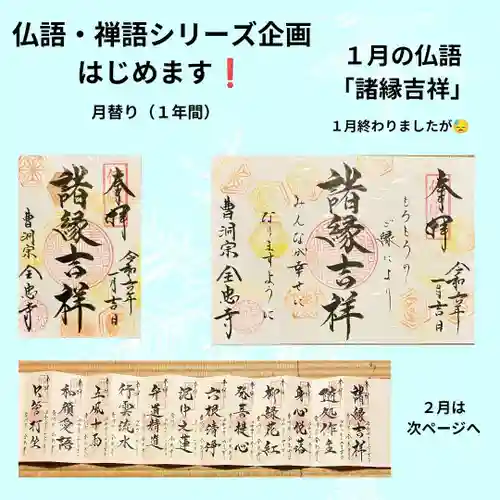 仏語・禅語シリーズ企画
はじめます❗
月替り（１年間）
１月の仏語
「諸縁吉祥」
１月終わりましたが😓
奉拝
諸縁吉祥
令和六年
一月吉日
曹洞宗 全忠寺
奉拝
もろもろの
ご縁により
諸縁吉祥
みんなが幸せに
なりますように
令和六年
一月吉日
曹洞宗 全忠寺
諸縁吉祥
随処作主
身心脱落
柳緑花紅
発菩提心
六根清浄
泥中之蓮
弁道精進
行雲流水
和顔愛語
只管打坐
２月は
次ページへ